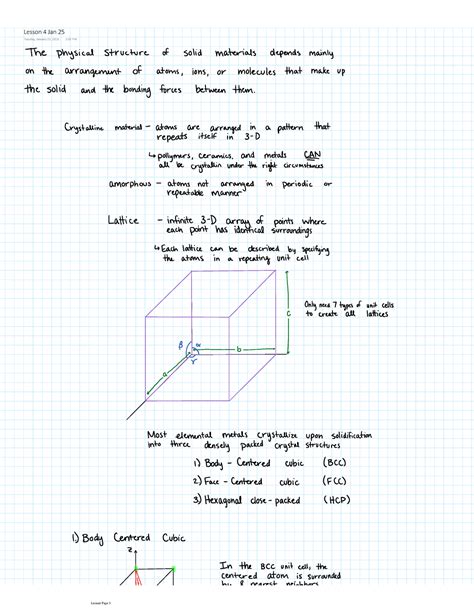 Lesson 4 Jan 25
The physical structure of solid materials depends mainly
on the arrangement of atoms, ions, or molecules that make up
the solid and the bonding forces between them.
Crystalline material - atoms are arranged in a pattern that
repeats itself in 3-D
↳ polymers, ceramics, and metals CAN
all be crystallin under the right circumstances
amorphous - atoms not arranged in periodic or
repeatable manner
Lattice - infinite 3-D array of points where
each point has identical surroundings
↳ Each lattice can be described by specifying
the atoms in a repeating unit cell
Only need 7 types of unit cells
to create all lattices
c
β α
b
γ
a
Most elemental metals crystallize upon solidification
into three densely packed crystal structures
1) Body - Centered cubic (BCC)
2) Face - Centered cubic (FCC)
3) Hexagonal close-packed (HCP)
1) Body Centered Cubic
z
In the BCC unit cell, the
centered atom is surrounded
by 8 nearest neighbors